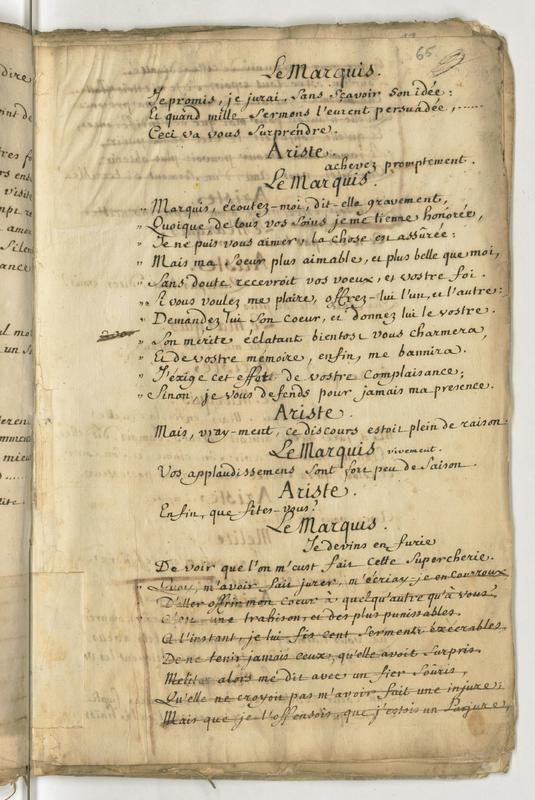 65
Le Marquis.
Je promis, je jurai, sans sçavoir son idée:
Et quand mille sermens l'eurent persuadée, ......
Ceci va vous surprendre.
Ariste.
achevez promptement.
Le Marquis.
" Marquis, écoutez-moi, dit-elle gravement,
" Quoique de tous vos soins je me tienne honorée,
" Je ne puis vous aimer; la chose est assûrée:
" Mais ma soeur plus aimable, et plus belle que moi,
" Sans doute, recevroit vos voeux, et vostre foi.
" Si vous voulez me plaire, offrez-lui l'un, et l'autre:
" Demandez lui son coeur, et donnez lui le vostre.
" Son mérite éclatant bientost vous charmera,
" Et de vostre mémoire, enfin, me bannira.
" J'éxige cet effort de vostre complaisance;
" Sinon, je vous défends pour jamais ma présence.
Ariste.
Mais, vray-ment, ce discours estoit plein de raison.
Le Marquis vivement.
Vos applaudissemens sont fort peu de saison.
Ariste.
Enfin, que fites-vous?
Le Marquis.
Je devins en furie
De voir que l'on m'eust fait cette supercherie.
" Quoy, m'avoir fait jurer, m'écriay-je en courroux,
D'aller offrir mon coeur à quelqu'autre qu'à vous,
" C'est une trahison, et des plus punissables.
A l'instant, je lui fis cent sermens éxécrables
De ne tenir jamais ceux, qu'elle avoit surpris.
Melite alors me dit avec un fier soûris,
Qu'elle ne croyoit pas m'avoir fait une injure;
Mais que je l'offensois, que j'estois un Parjure,